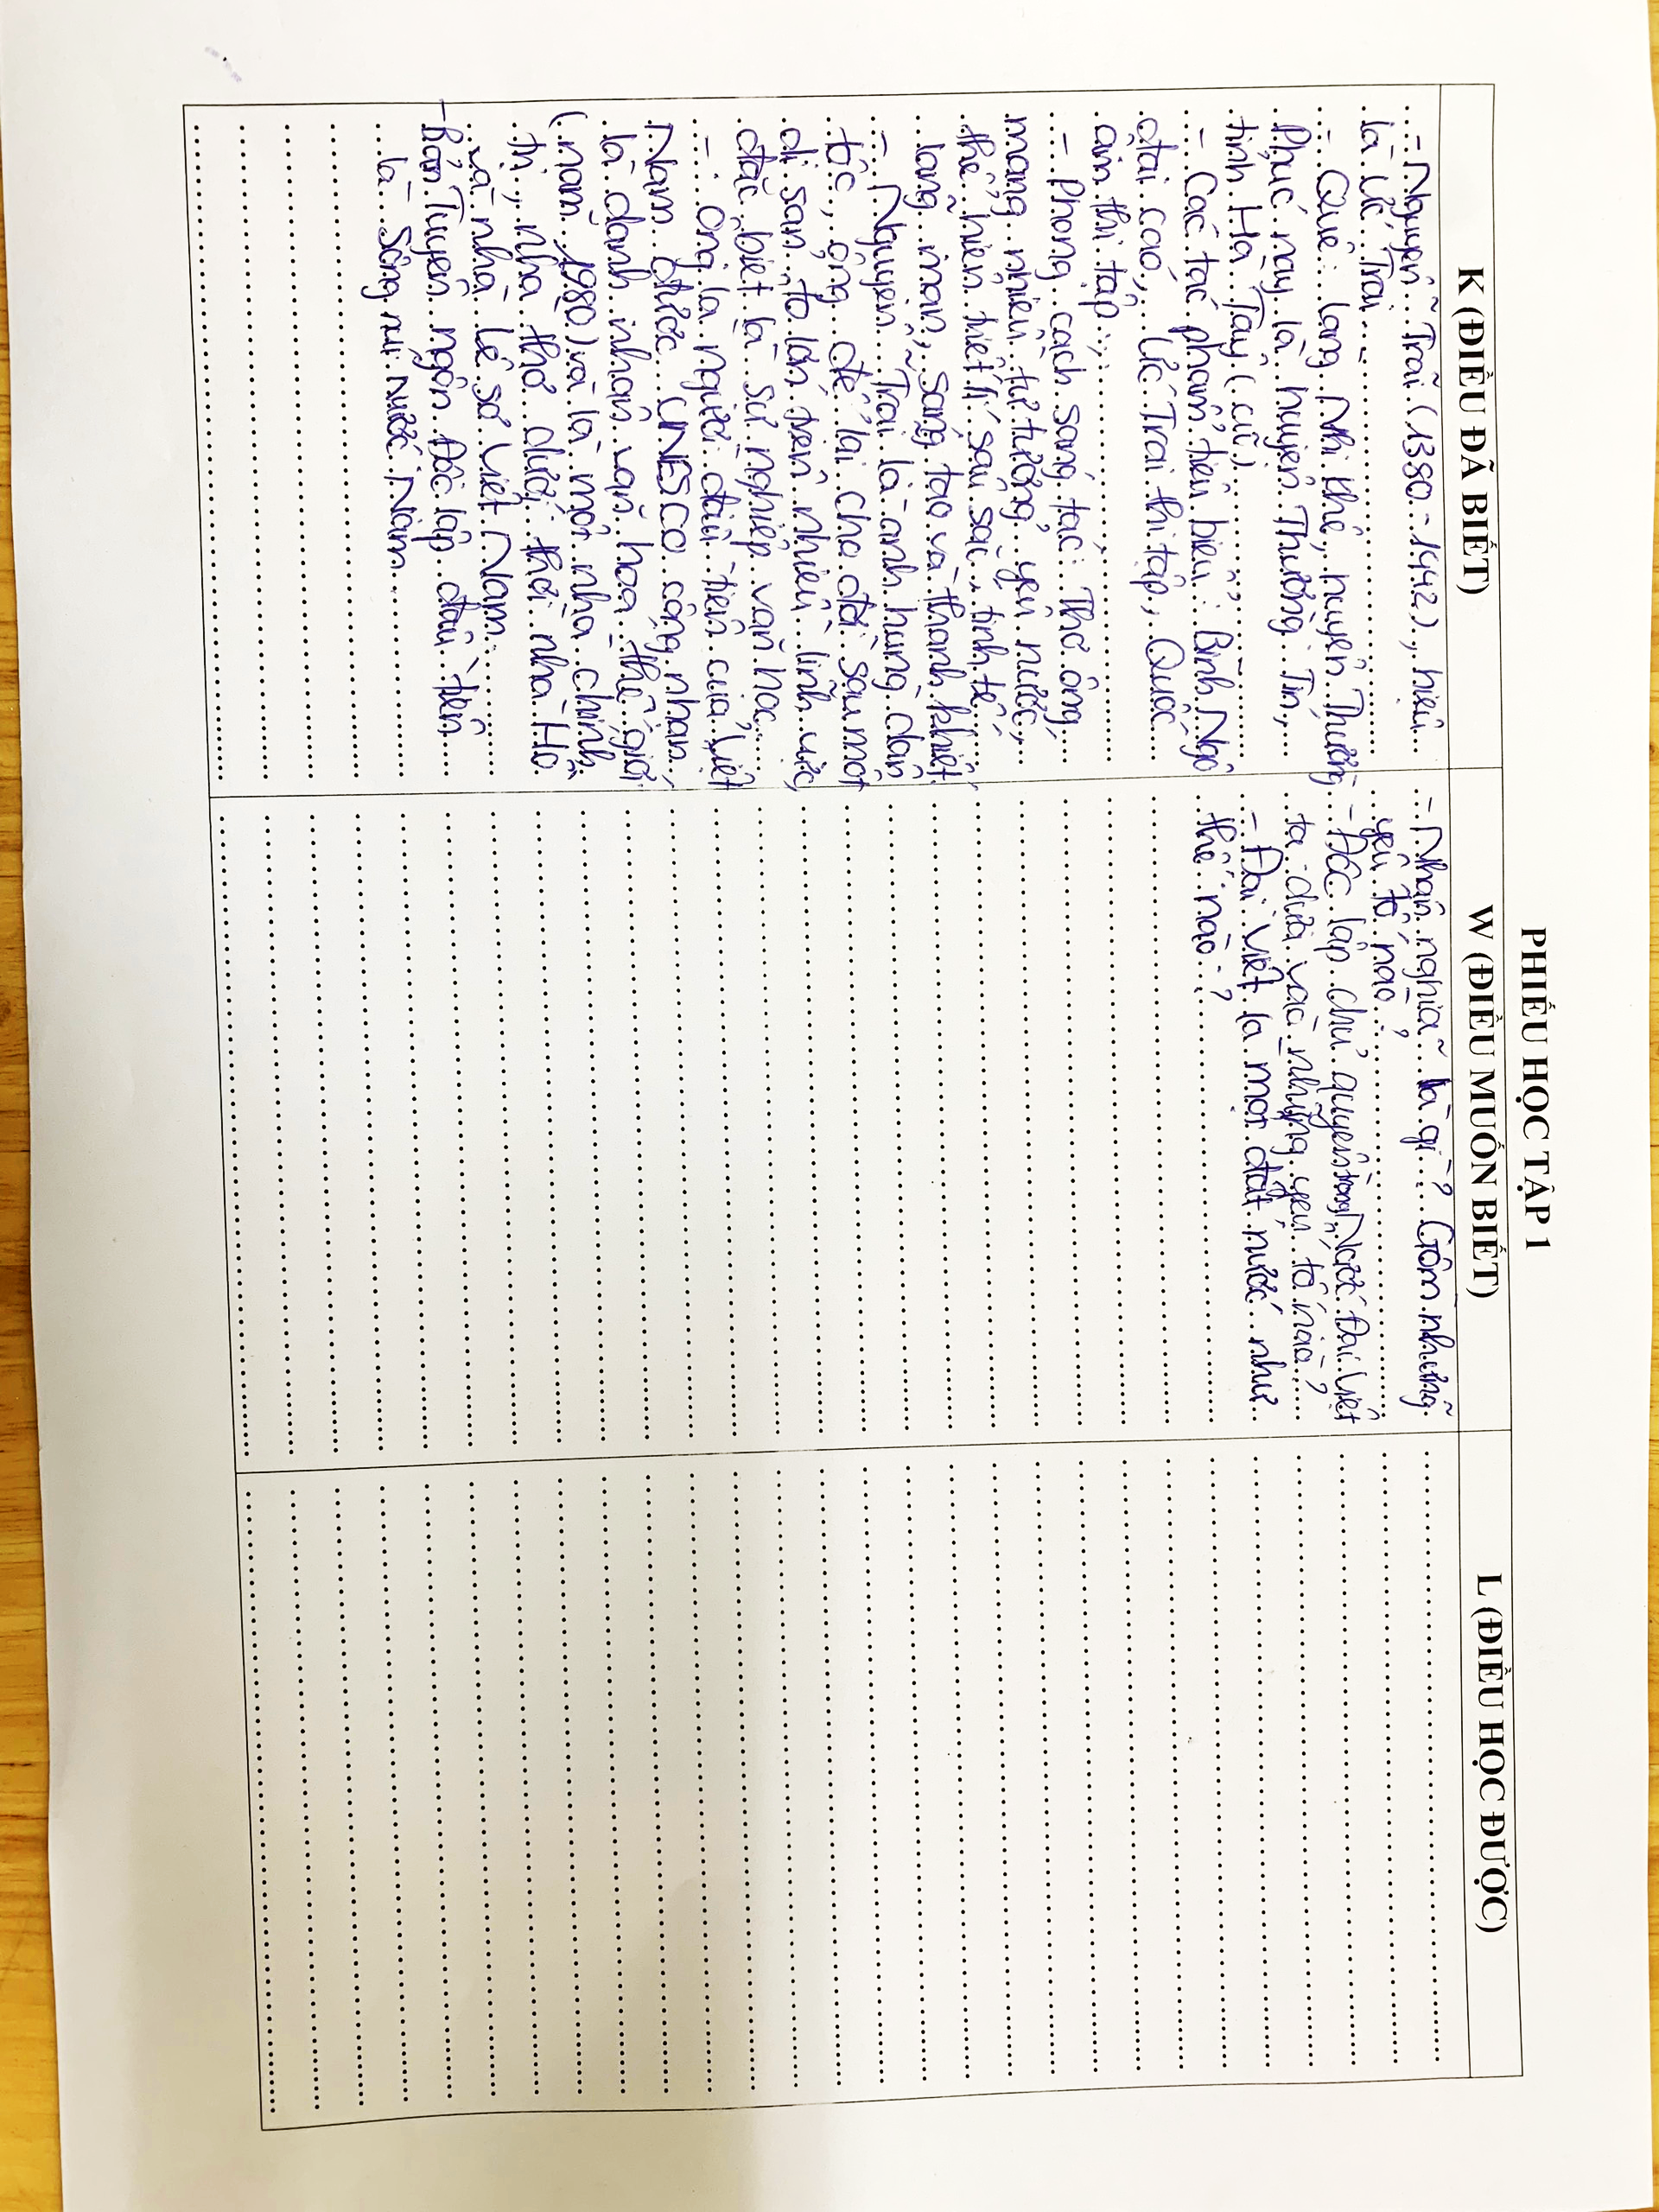 PHIẾU HỌC TẬP 1
K (ĐIỀU ĐÃ BIẾT)
- Nguyễn Trãi (1380 - 1442), hiệu
là Ức Trai
- Quê: làng Nhị Khê, huyện Thượng
Phúc nay là huyện Thường Tín,
tỉnh Hà Tây (cũ)
- Các tác phẩm tiêu biểu: Bình Ngô
đại cáo, Ức Trai thi tập, Quốc
âm thi tập...
- Phong cách sáng tác: Thơ ông
mang nhiều tư tưởng yêu nước,
thể hiện triết lí sâu sắc, tinh tế,
lãng mạn, sáng tạo và thanh khiết
- Nguyễn Trãi là anh hùng dân
tộc, ông để lại cho đời sau một
di sản to lớn trên nhiều lĩnh vực,
đặc biệt là sự nghiệp văn học.
- Ông là người đầu tiên của Việt
Nam được UNESCO công nhận
là danh nhân văn hóa thế giới
(năm 1980) và là một nhà chính
trị, nhà thơ dưới thời nhà Hồ
và nhà Lê sơ Việt Nam.
- Bản Tuyên ngôn Độc lập đầu tiên
là Sông núi nước Nam
W (ĐIỀU MUỐN BIẾT)
- Nhân nghĩa là gì? Gồm những
yếu tố nào?
- Độc lập chủ quyền trong Nước Đại Việt
ta dựa vào những yếu tố nào?
- Đại Việt là một đất nước như
thế nào?
L (ĐIỀU HỌC ĐƯỢC)